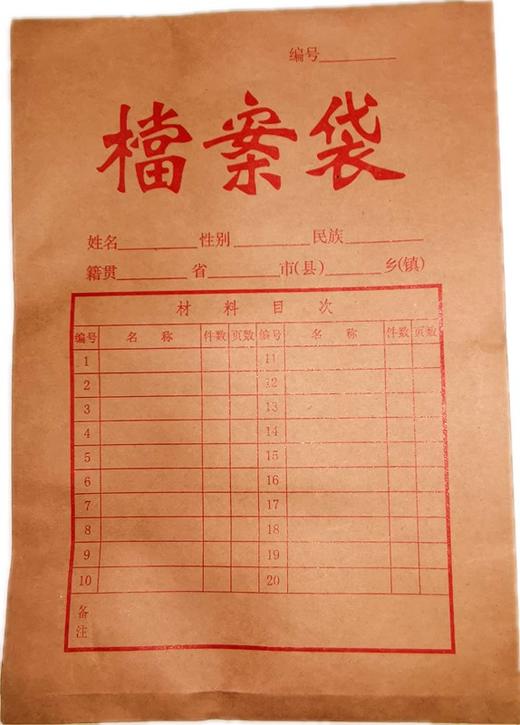 编号________
檔案袋
姓名________性别________民族________
籍贯________省________市(县)________乡(镇)
材料目次
编号 名称 件数 页数 编号 名称 件数 页数
1 11
2 12
3 13
4 14
5 15
6 16
7 17
8 18
9 19
10 20
备注